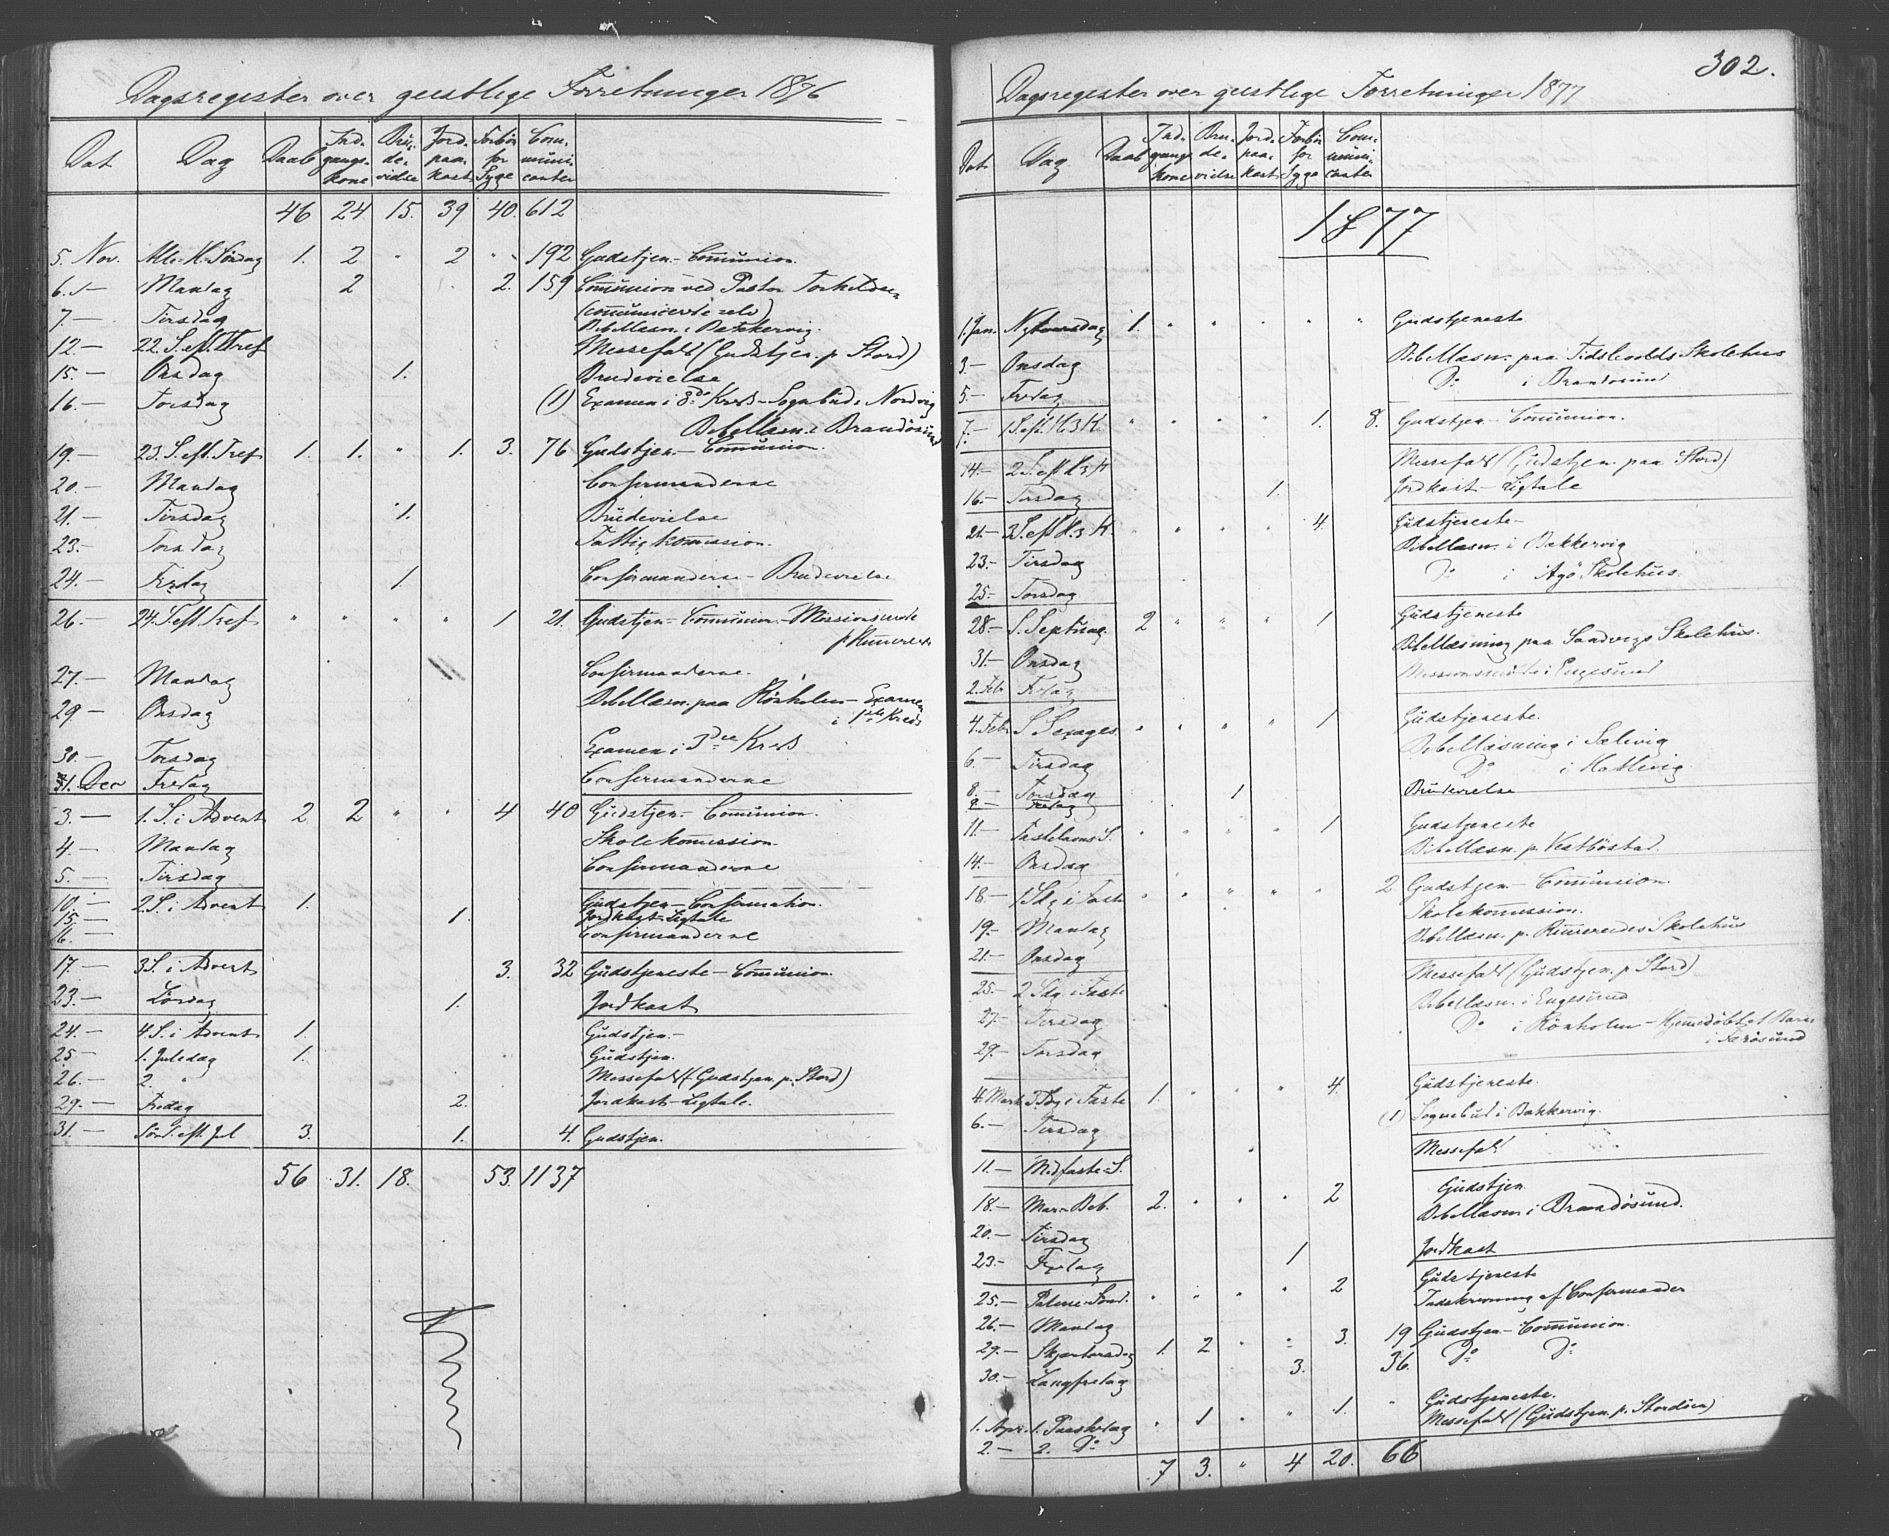 Dagsregister over geistlige Forretninger 1876
Dat. Dag Daab Ind-gangs-kone Bru-de-vidse Jord-paa-kast Forbön for Syge Com-muni-canter
46 24 15. 39 40. 612
5. Nov. Alle H. Söndag 1. 2 " 2 " 192 Gudstjen - Communion.
6. Mandag 2 2. 159 Communion ved Pastor
(communicerte selv)
7. — Tirsdag Bibellæsn. i Bakkervig.
12. — 22. S. eft. Tref Messefald (Gudstjen. p. Stord)
15. — Onsdag 1. Brudevielse
16. — Torsdag (1) Examen i 3de Kreds - Sognebud i Nordvig
Bibellæsn. i Brandösund
19. — 23. S. eft. Tref 1. 1. " 1. 3. 76 Gudstjen. - Communion.
20. — Mandag Confirmanderne
21. — Tirsdag 1. Brudevielse
23. — Torsdag Fattigkommission.
24. — Fredag 1. Confirmanderne - Brudevielse
26. — 24. S. eft. Tref " " " " 1 21. Gudstjen - Communion - Missionsmöte
27. — Mandag Confirmanderne.
29 — Onsdag Bibellæsn. paa Rönholm - Examen
i 1ste Kreds
30. — Torsdag Examen i Kreds
1. Dec Fredag Confirmanderne
3. — 1. S. i Advent 2 2 " " 4 40 Gudstjen - Communion.
4. — Mandag Skolekommission.
5. — Tirsdag Confirmanderne
10. — 2. S. i Advent 1. Gudstjen - Confirmation.
15. — 1. Jordkast - Ligtale
16. — Confirmanderne
17. — 3 S. i Advent 3. 32 Gudstjeneste - Communion.
23. — Lördag 1. Jordkast
24. — 4. S. i Advent 1. Gudstjen -
25 — 1. Juledag 1. Gudstjen.
26. — 2. " Messefald (Gudstjen p. Stord)
29. — Fredag 2. Jordkast - Ligtale.
31. — Sönd. eft. Jul 3. 1. 4. Gudstjen.
56 31. 18. 53. 1137
302.
Dagsregister over geistlige Forretninger 1877
Dat. Dag Daab Ind-gangs-kone Bru-de-vidse Jord-paa-kast Forbön for Syge Com-muni-canter
1877
1. Jan. Nytaarsdag 1. " " " " " Gudstjeneste
3 — Onsdag Bibellæsn. paa Skolehus
5. — Fredag Do i Brandösund
7. — 1 S. eft. H 3 K. " " " " 1. 8. Gudstjen - Communion.
14. — 2 S. eft H 3 K Messefald (Gudstjen. paa Stord)
16. — Tirsdag 1. Jordkast - Ligtale
21. — 3 S. eft H. 3 K. " " " 4. Gudstjeneste -
23. — Tirsdag Bibellæsn. i Bakkervig
25. — Torsdag Do i Agö Skolehus.
28 — S. Septuag. 2 " " " 1 Gudstjeneste
31. — Onsdag Bibellæsning paa Sandvigs Skolehus.
2. Feb Fredag Missionsmöte i Engesund
4. Feb S Sexages " " " " 1 Gudstjeneste.
6. — Tirsdag Bibellæsning i Selevig
8. — Torsdag Do i Hatlevig
9 — Fredag 1 Brudevielse
11. — Fastelavns S. " " " " 1 Gudstjeneste
14. — Onsdag Bibellæsn. p. Vestböstad.
18. — 1 Sdg i Faste " " " " " 2 Gudstjen - Communion.
19. — Mandag Skolekommission.
21. — Onsdag Bibellæsn. p. Skolehus
25. — 2 Sdg. i Faste Messefald (Gudstjen. p. Stord)
27. — Tirsdag Bibellæsn. i Engesund
29. — Torsdag Do i Rönholm - Hjemmedöbt et Barn
4. Marts 3 Sdg i Faste 1. " " " 4. Gudstjeneste.
6. — Tirsdag (1) Sognebud i Bakkervig.
11. — Midfaste S. Messefald
18. — Mar. Beb. 2. " " " 2 Gudstjen
20. — Tirsdag Bibellæsn i Brandösund.
23. — Fredag 1 Jordkast
25. — Palme Sönd. " " " " 2 Gudstjeneste
26. — Mandag Indskrivning af Confirmander
29. — Skjærtorsdag 1. 2 " " 3. 19 Gudstjen - Communion.
30. — Langfredag 3. 36. Do Do
1. Apr. 1. Paaskedag " 1 " " 1. " Gudstjeneste.
2. — 2. Do Messefald (Gudstjen. p. Stordöen)
7 3. " 4 20. 66